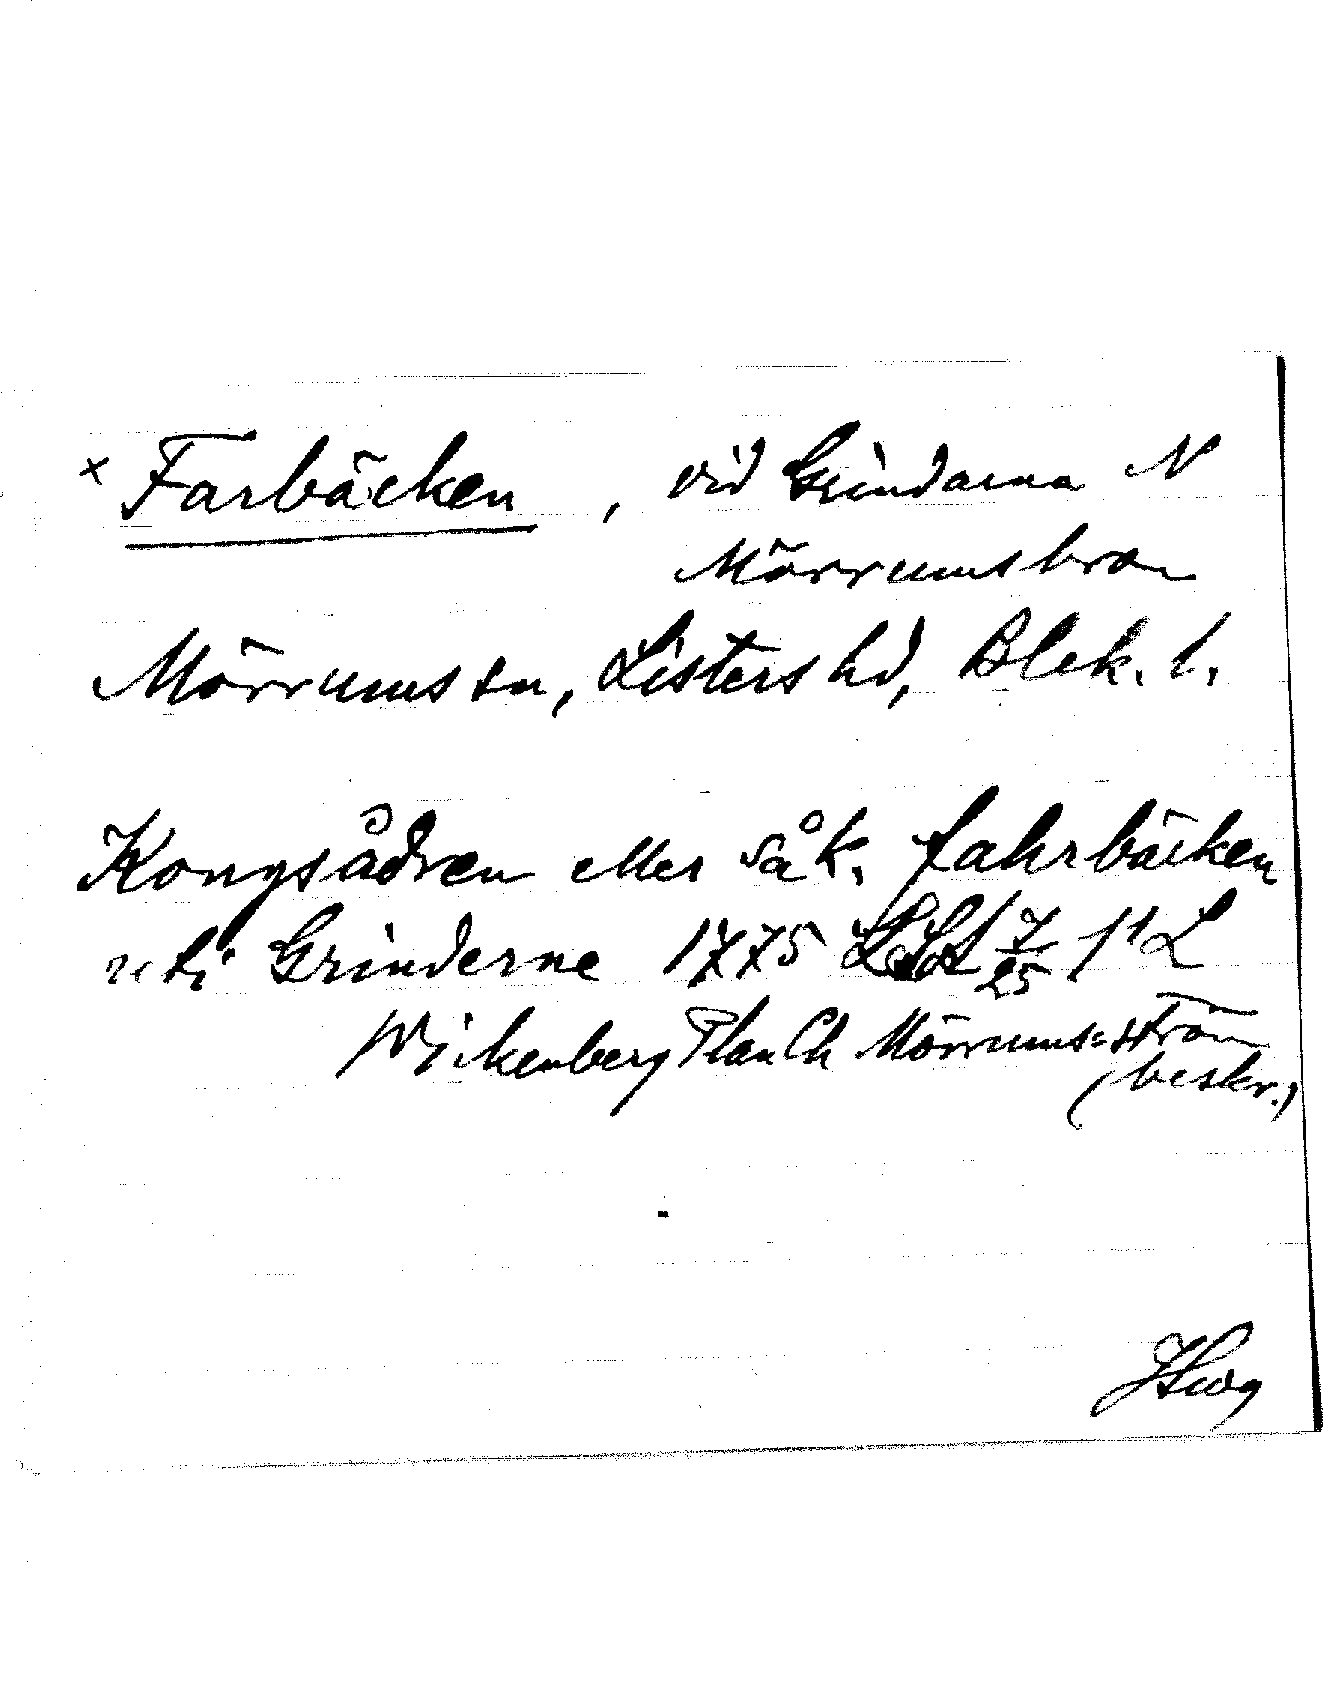 × Farbäcken, vid Grindarna N
Mörrumsbron
Mörrums sn, Listers hd, Blek. l.
Kongsådren eller såk. fahrbäcken
uti Grinderne 1775 7/25 1¹ L
Wickenberg Plan Ch Mörrums-ström
(beskr.)